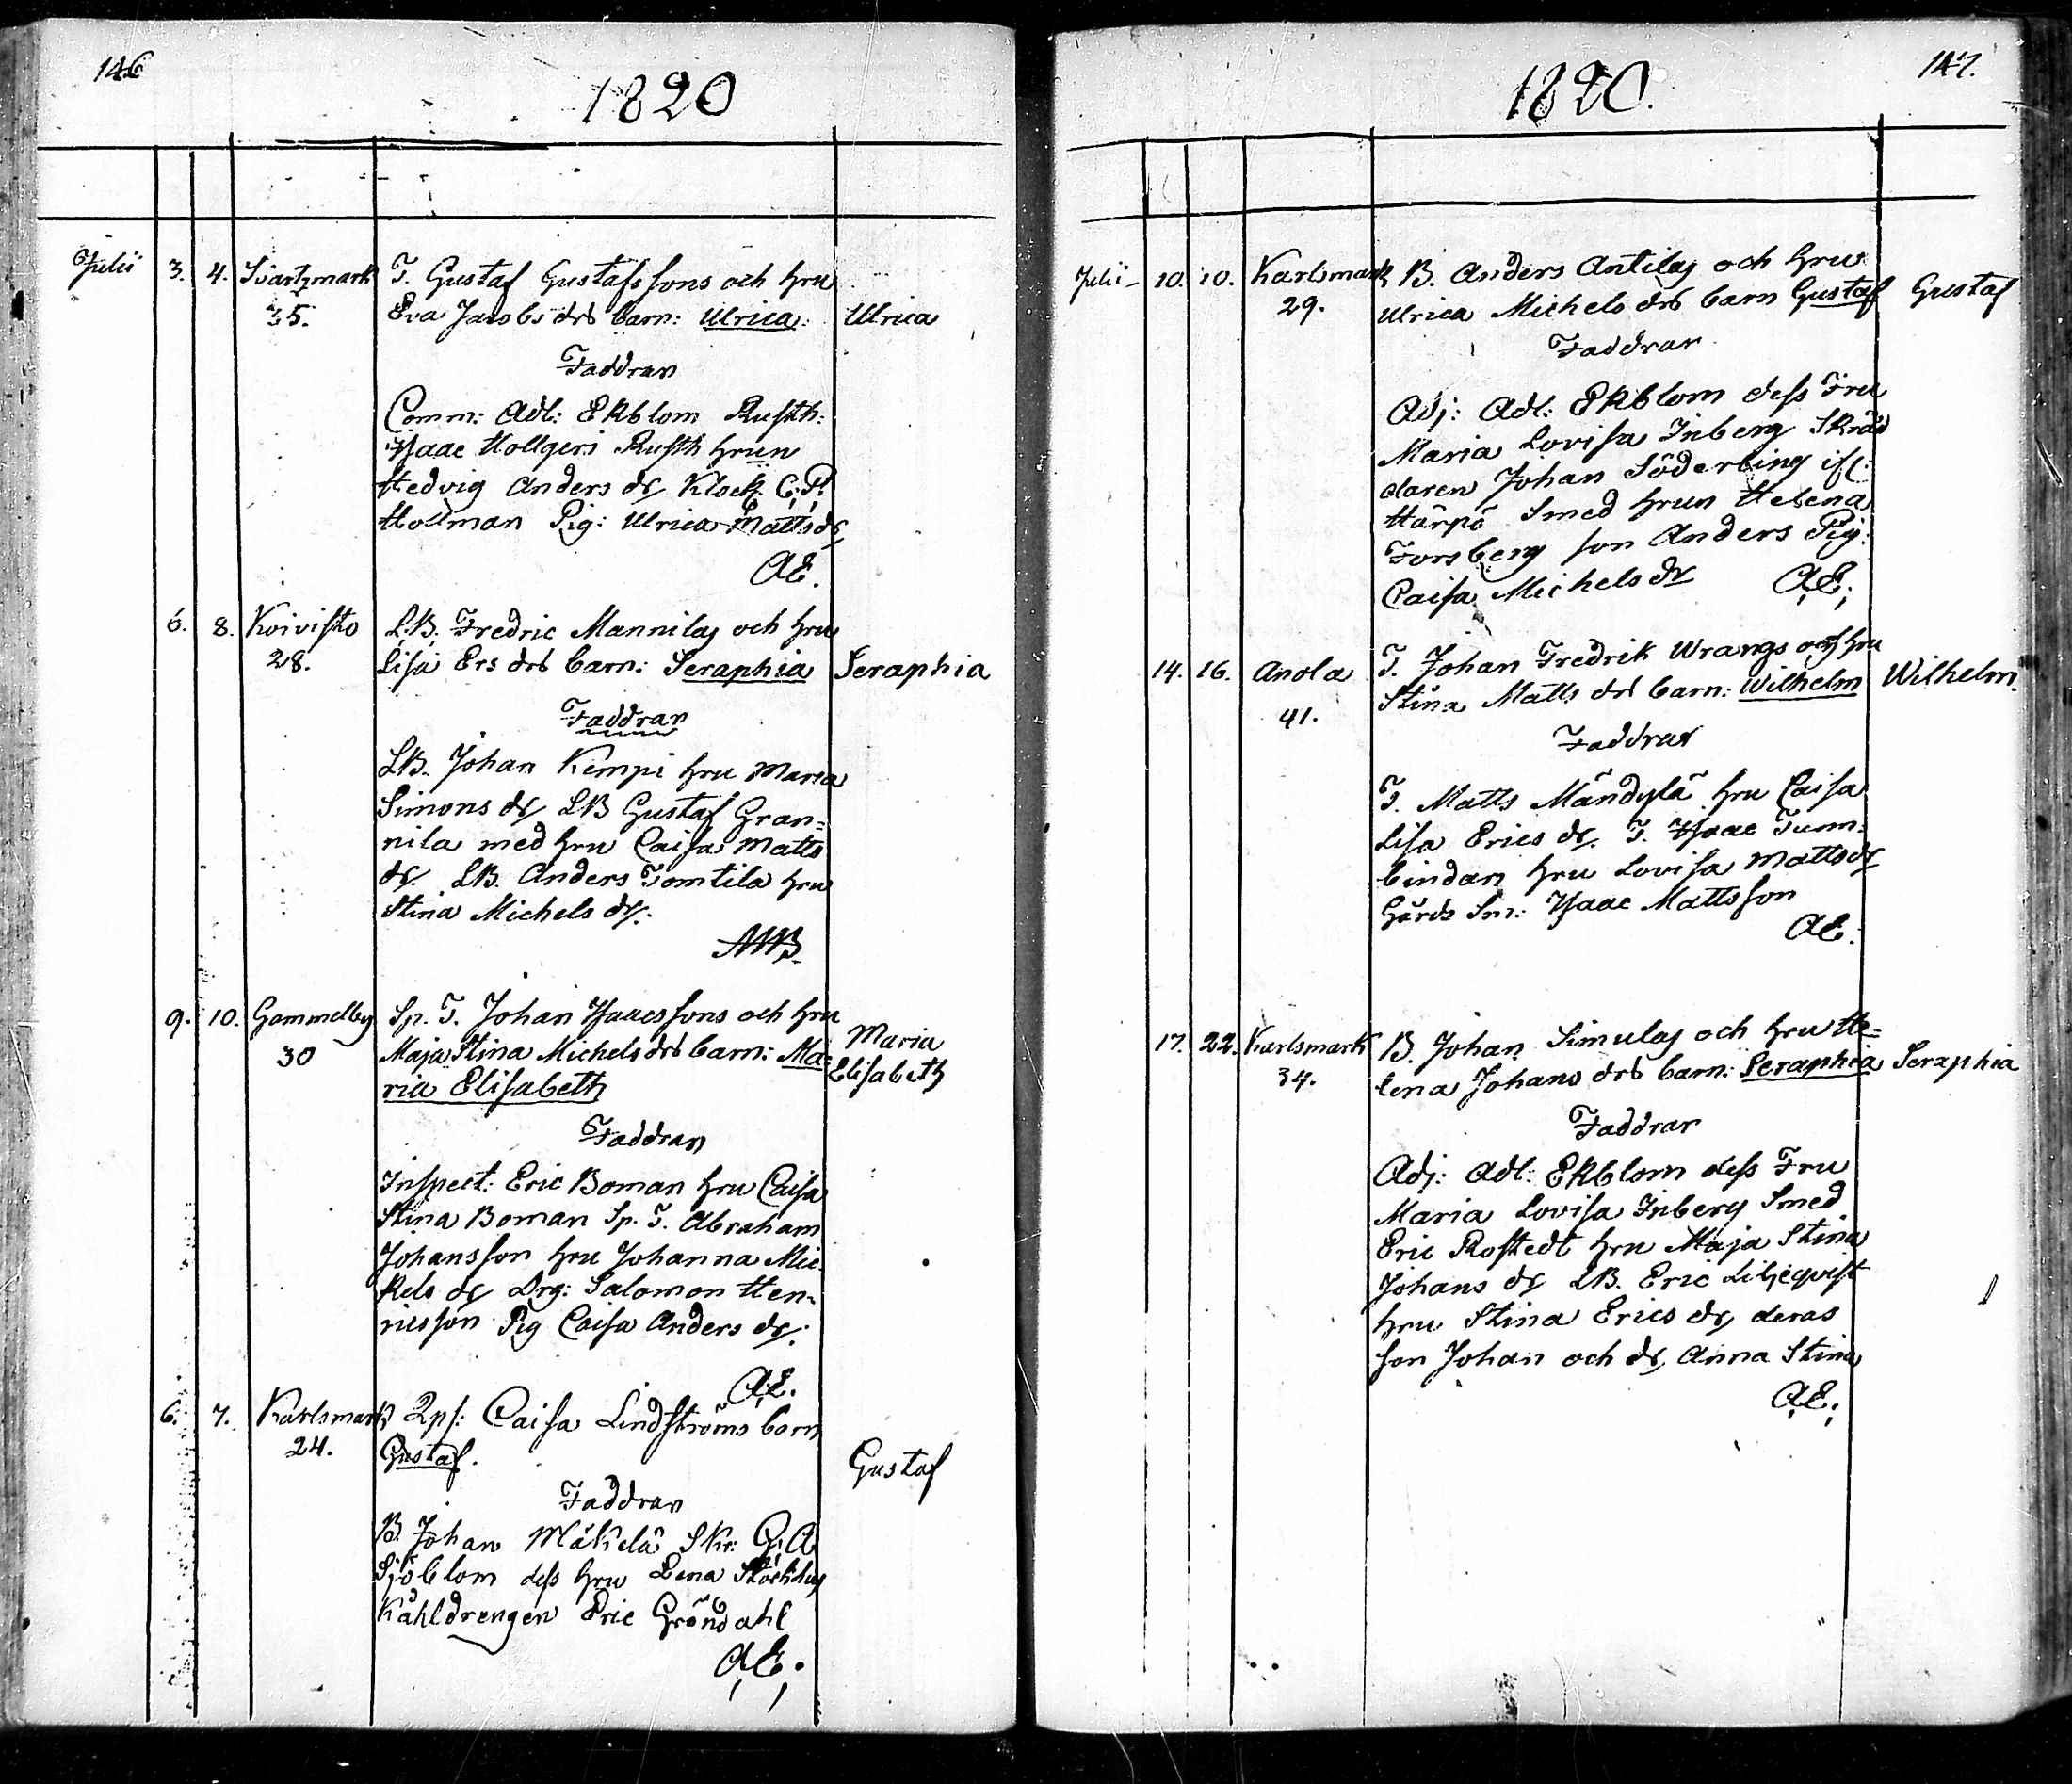 146
1820
Julii 3. 4. Svartzmark T. Gustaf Gustafssons och hru
35. Eva Jacobs drs barn: Ulrica. Ulrica
Faddrar
Comm: Adl: Ekblom Rusth:
Isaac Hollgeri Rusth hrun
Hedvig Anders dr Klock. C. P.
Hollman Pig: Ulrica Matts dr
AE.
6. 8. Koivisto LB. Fredric Mannilas och hru
28. Lisa Ers drs barn: Seraphia Seraphia
Faddrar
LB. Johan Kempi hru Maria
Simons dr LB Gustaf Gran=
nila med hru Caisa Matts
dr. LB. Anders Tomtila hru
Stina Michels dr.
9. 10. Gammelby Sp. T. Johan Isaacssons och hru
30 Maja Stina Michels drs barn: Ma= Maria
ria Elisabeth Elisabeth
Faddrar
Inspect: Eric Boman hru Caisa
Stina Boman Sp. T. Abraham
Johansson hru Johanna Mic
kels dr Drg: Salomon Hen=
ricsson Pig Caisa Anders dr.
AE.
6. 7. Karlsmark Qps: Caisa Lindströms barn
24. Gustaf. Gustaf
Faddrar
B. Johan Mäkelä Skr: G. A
Sjöblom dess hru Lena
Kåhldrengen Eric Gröndahl
AE.
147.
1820.
Julii 10. 10. Karlsmark B. Anders Antilas och hru
29. Ulrica Michels drs barn Gustaf Gustaf
Faddrar
Adj: Adl: Ekblom dess Fru
Maria Lovisa Inberg Skräd
daren Johan Söderling
Härpö Smed hrun Helena
Forsberg son Anders Pig:
Caisa Michels dr AE.
14. 16. Anola T. Johan Fredrik Wrangs och hru
41. Stina Matts drs barn: Wilhelm Wilhelm.
Faddrar
T. Matts Mändylä hru Caisa
Lisa Erics dr. T. Isaac Tunn=
bindar hru Lovisa Matts dr
Gårds Sm: Isaac Mattsson
AE.
17. 22. Karlsmark B. Johan Simulas och hru He=
34. lena Johans drs barn: Seraphia Seraphia
Faddrar
Adj: Adl: Ekblom dess Fru
Maria Lovisa Inberg Smed
Eric Rostedt hru Maja Stina
Johans dr LB. Eric Liljeqvist
hru Stina Erics dr deras
son Johan och dr Anna Stina
AE.